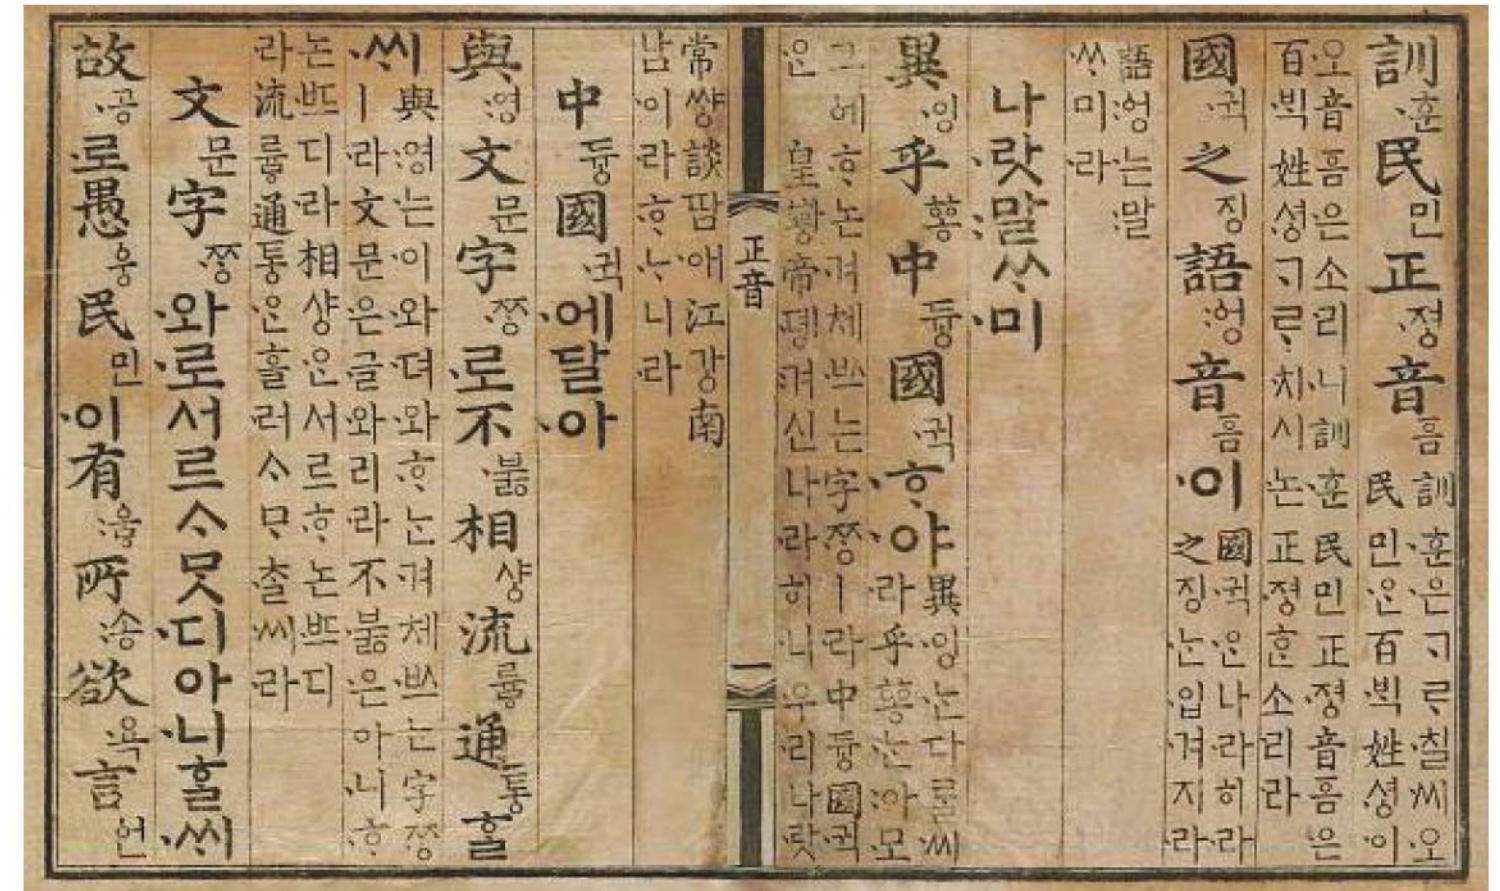 訓·훈民민正·졍音흠 訓·훈·은ᄀᆞᄅᆞ칠·씨·오民민·ᄋᆞᆫ百·ᄇᆡᆨ姓·셩·이
오音흠·은소·리·니訓·훈民민正·졍音흠·은百·ᄇᆡᆨ姓·셩ᄀᆞᄅᆞ·치시·논正·졍ᄒᆞᆫ소·리·라
國·귁之징語:엉音흠·이 國·귁·ᄋᆞᆫ나·라히·라之징·ᄂᆞᆫ·입·겨지·라
語:엉·는:말ᄊᆞ·미·라
나·랏:말ᄊᆞ·미
異·잉乎ᅘᅩᆼ中듀ᇰ國·귁·ᄒᆞ·야 異·잉·ᄂᆞᆫ다ᄅᆞᆯ·씨·라乎ᅘᅩᆼ·ᄂᆞᆫ:아·모
그ᅌᅦᄒᆞ·논·겨체·ᄡᅳ는字·ᄍᆞᆼㅣ·라中듀ᇰ國·귁·ᄋᆞᆫ皇ᅘᅪᇰ帝·뎽:겨신나·라히·니우·리나·랏
正音 一
常쌰ᇰ談땀·애江가ᇰ南남·이·라·ᄒᆞ·ᄂᆞ니·라
中듀ᇰ國·귁·에달·아
與:영文문字·ᄍᆞᆼ·로不·부ᇙ相샤ᇰ流류ᇢ通토ᇰᄒᆞᆯ
·ᄊᆡ 與:영·는·이·와·뎌·와·ᄒᆞ·ᄂᆞᆫ·겨체·ᄡᅳ는字·ᄍᆞᆼㅣ·라文문·은·글·와리·라不·부ᇙ·은아·니·ᄒᆞ
논·ᄠᅳ디·라相샤ᇰ·ᄋᆞᆫ서르·ᄒᆞ논·ᄠᅳ디·라流류ᇢ通토ᇰ·ᄋᆞᆫ흘·러ᄉᆞᄆᆞᄎᆞᆯ·씨·라
文문字·ᄍᆞᆼ·와·로서르ᄉᆞᄆᆞᆺ·디아·니ᄒᆞᆯ·ᄊᆡ
故·공·로愚우ᇰ民민·이有:우ᇢ所:송欲·욕言언